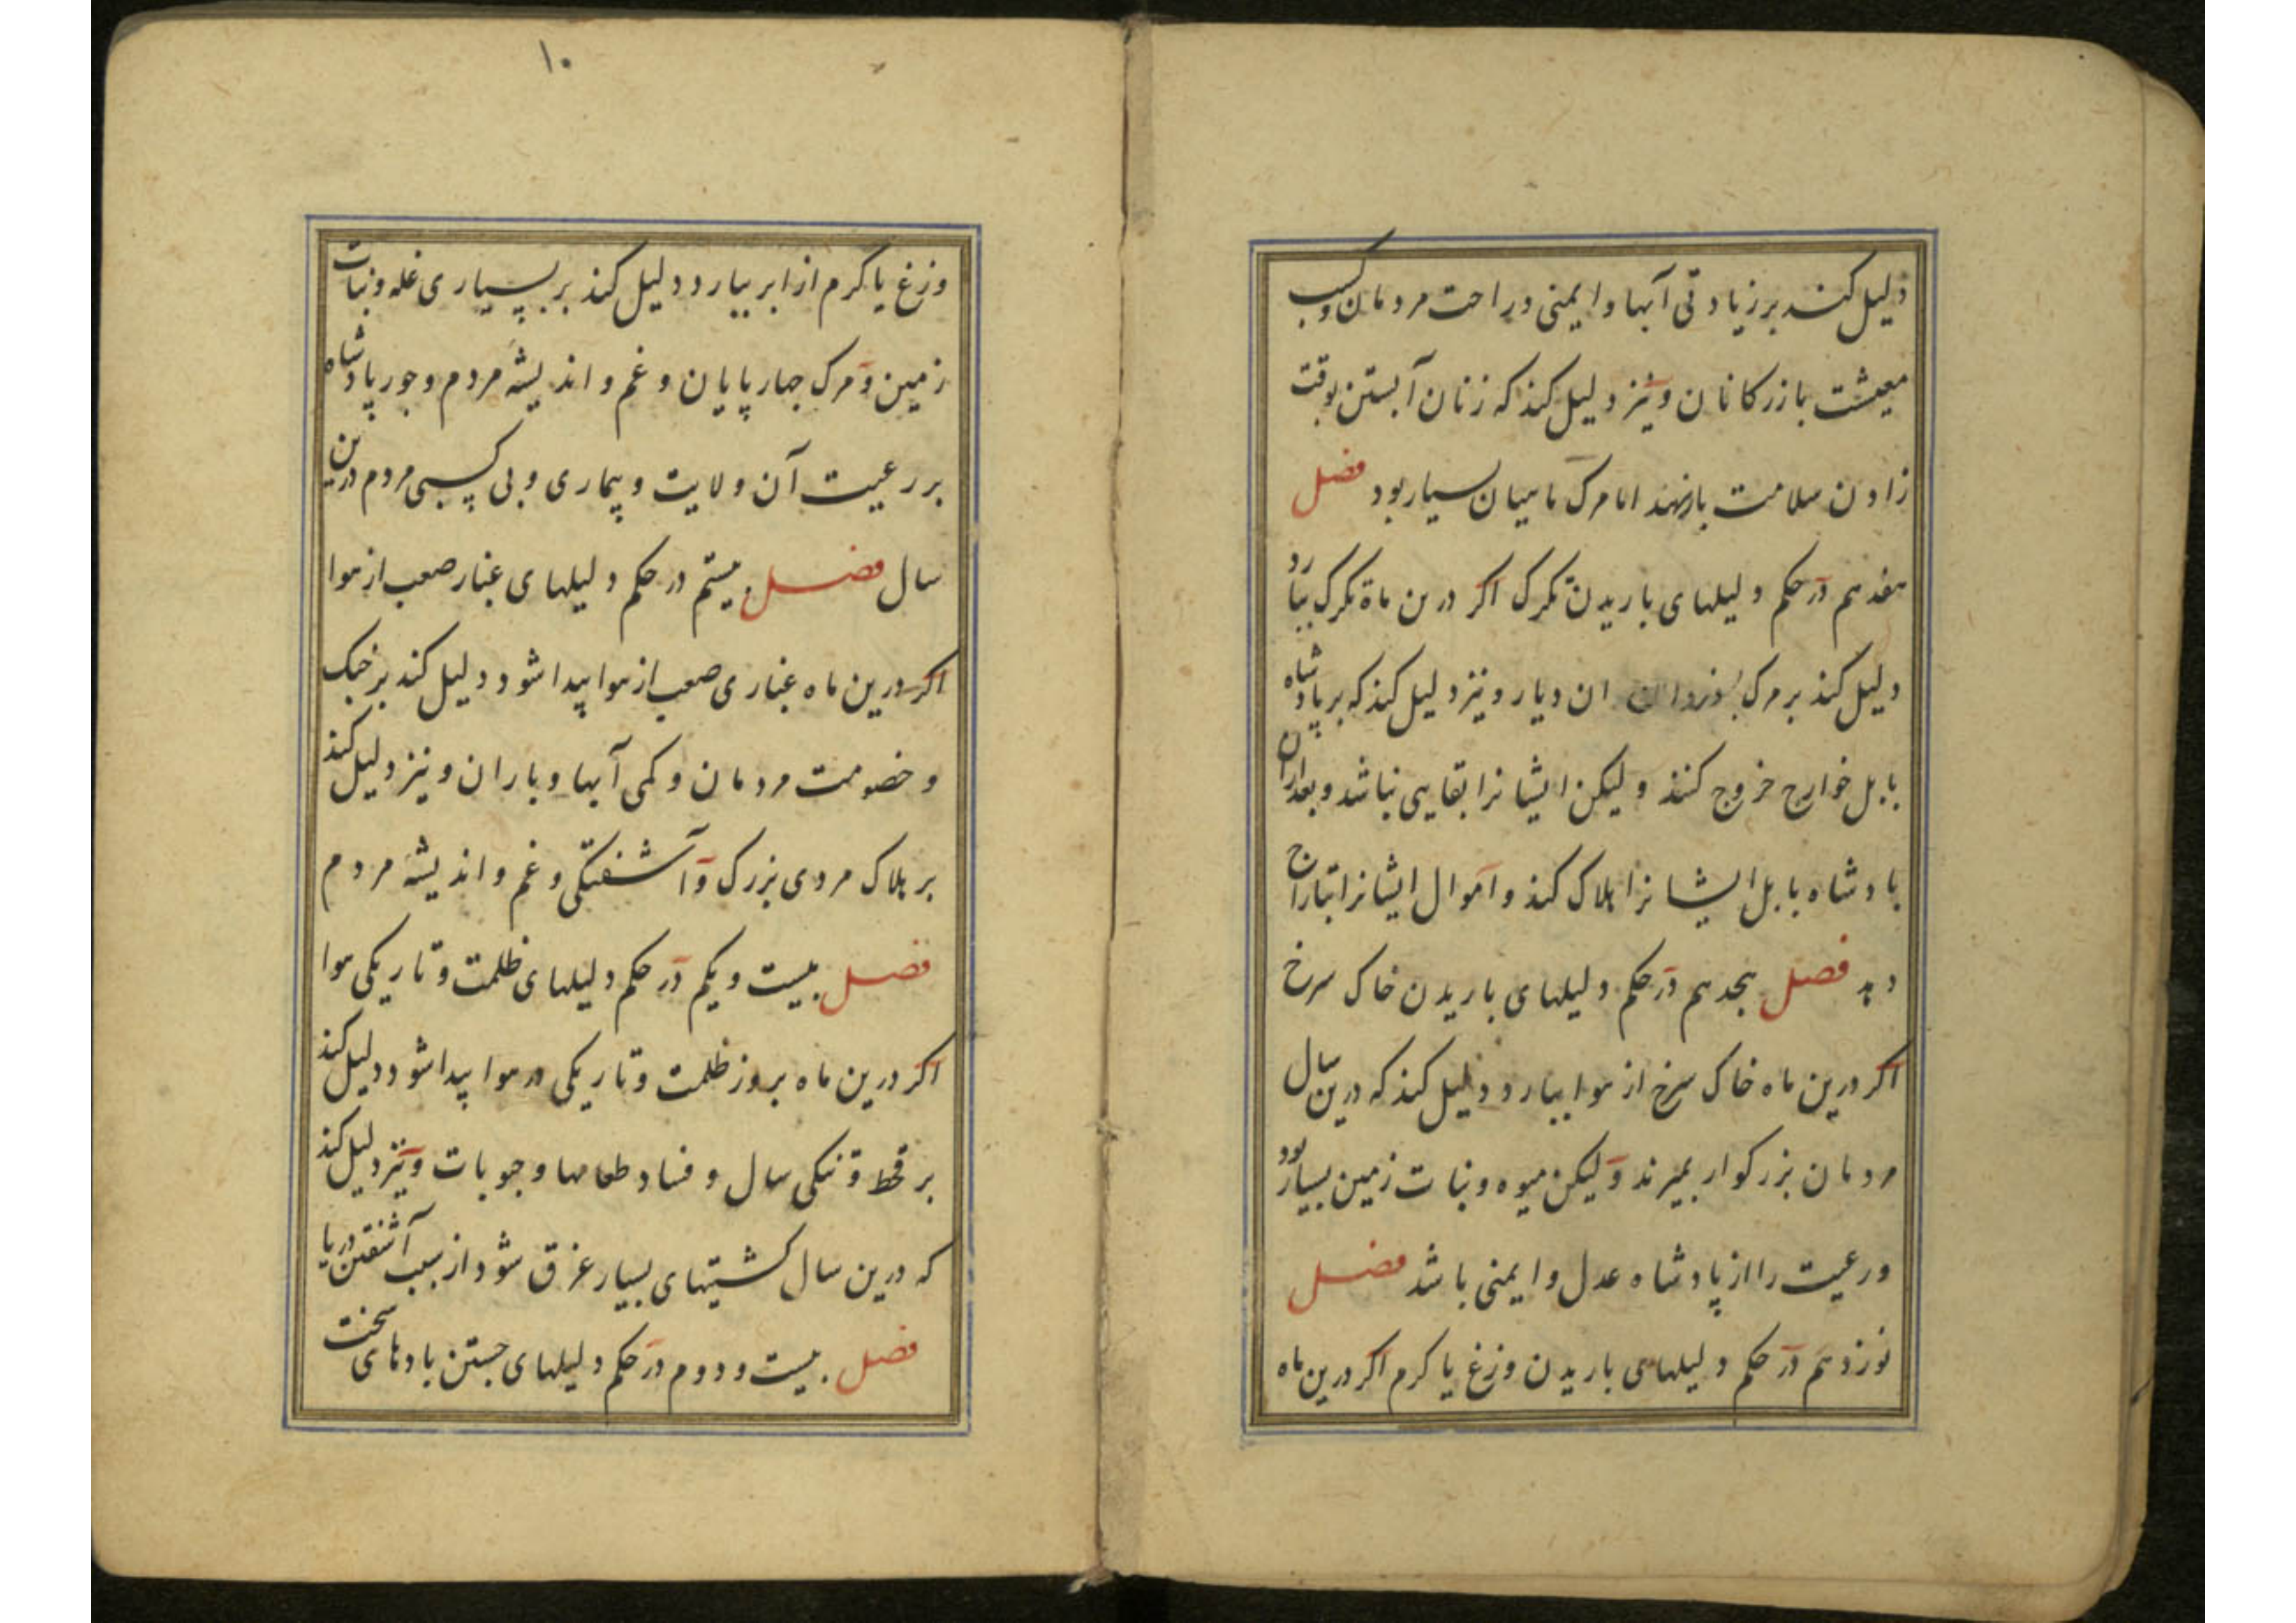 دلیل کند بر زیادتی آبها و ایمنی و راحت مردمان و کسب
معیشت بازرکانان و نیز دلیل کند که زنان آبستن بوقت
زادن سلامت بار نهند اما مرک ماهیان بسیار بود فصل
هفدهم در حکم دلیلهای باریدن تکرک اکر درین ماه تکرک ببارد
دلیل کند بر مرک ان دیار و نیز دلیل کند که بر پادشاه
بابل خوارج خروج کنند و لیکن ایشانرا بقایی نباشد و بعد ازان
بادشاه بابل ایشانرا هلاک کند و اموال ایشانرا بتاراج
دهد فصل هجدهم در حکم دلیلهای باریدن خاک سرخ
اکر درین ماه خاک سرخ از هوا ببارد دلیل کند که درین سال
مردمان بزرکوار بمیرند و لیکن میوه و نبات زمین بسیار بود
و رعیت را از پادشاه عدل و ایمنی باشد فصل
نوزدهم در حکم دلیلهای باریدن وزغ یا کرم اکر درین ماه
۱۰
وزغ یا کرم از ابر ببارد دلیل کند بر بسیاری غله و نبات
زمین و مرک چهارپایان و غم و اندیشهٔ مردم و جور پادشاه
بر رعیت آن ولایت و بیماری و بی کسبی مردم درین
سال فصل بیستم در حکم دلیلهای غبار صعب از هوا
اکر درین ماه غباری صعب از هوا پیدا شود دلیل کند بر جنک
و خصومت مردمان و کمی آبها و باران و نیز دلیل کند
بر هلاک مردی بزرک و آشفتکی و غم و اندیشهٔ مردم
فصل بیست و یکم در حکم دلیلهای ظلمت و تاریکی هوا
اکر درین ماه بروز ظلمت و تاریکی در هوا پیدا شود دلیل کند
بر قحط و تنکی سال و فساد طعامها و حبوبات و نیز دلیل کند
که درین سال کشتیهای بسیار غرق شود از سبب آشفتن دریا
فصل بیست و دوم در حکم دلیلهای جستن بادهای سخت